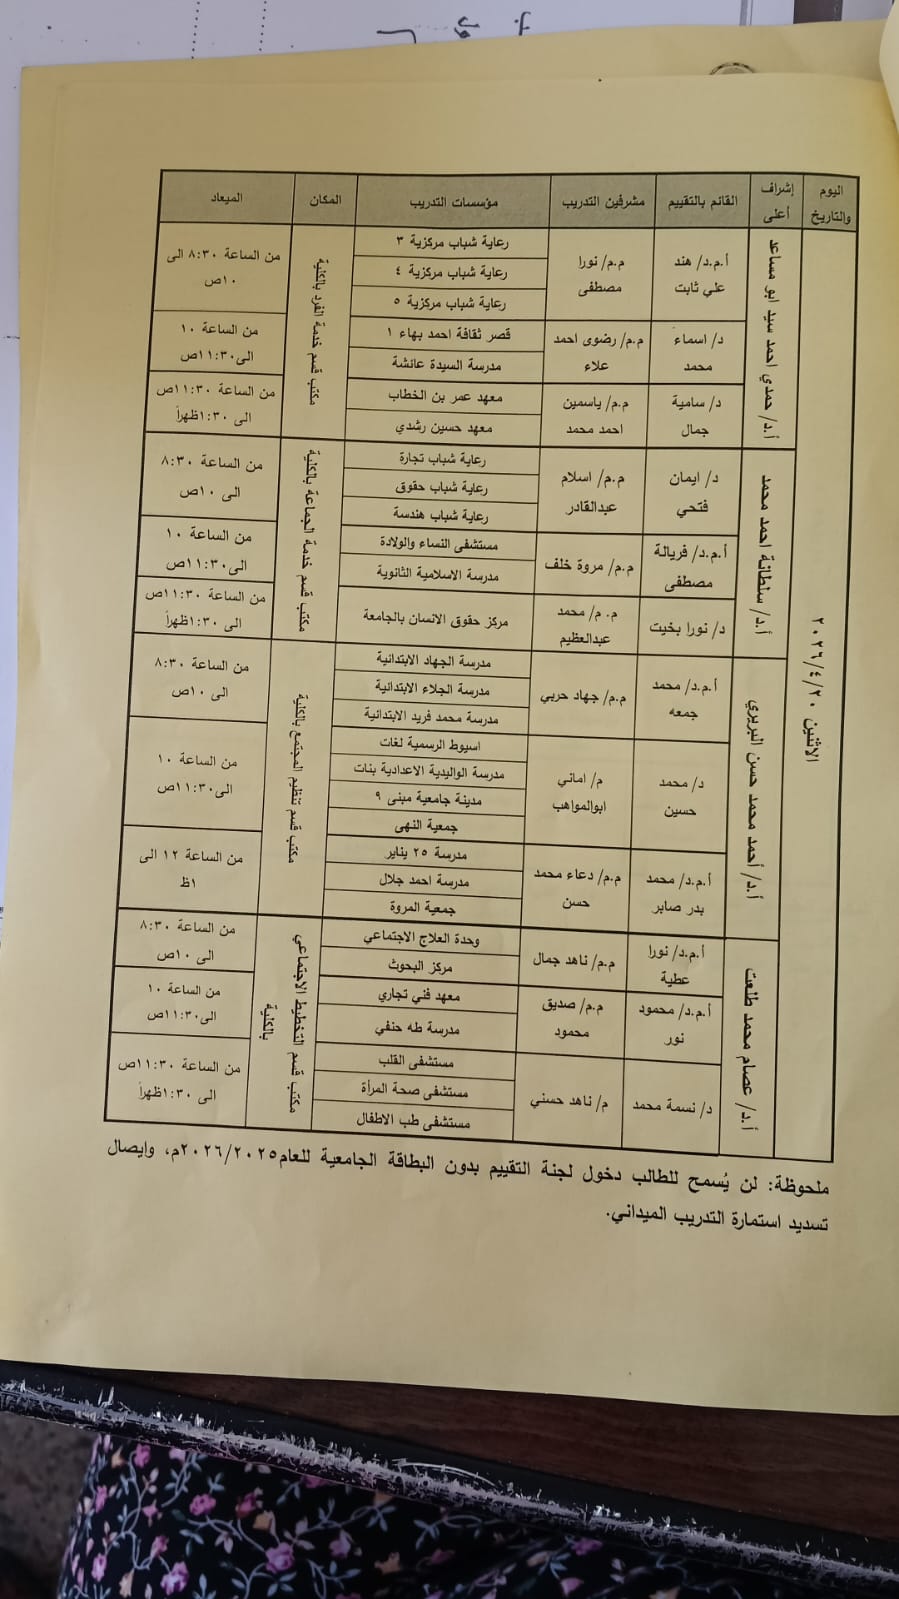 اليوم والتاريخ | إشراف أعلى | القائم بالتقييم | مشرفين التدريب | مؤسسات التدريب | المكان | الميعاد
الاثنين ٢٠٢٦/٤/٢٠
أ.د/ حمدي احمد سيد ابو مساعد
أ.م.د/ هند علي ثابت
م.م/ نورا مصطفى
رعاية شباب مركزية ٣
رعاية شباب مركزية ٤
رعاية شباب مركزية ٥
مكتب قسم خدمة الفرد بالكلية
من الساعة ٨:٣٠ الى ١٠ص
د/ اسماء محمد
م.م/ رضوى احمد علاء
قصر ثقافة احمد بهاء ١
مدرسة السيدة عائشة
من الساعة ١٠ الى١١:٣٠ص
د/ سامية جمال
م.م/ ياسمين احمد محمد
معهد عمر بن الخطاب
معهد حسين رشدي
من الساعة ١١:٣٠ص الى ١:٣٠ظهراً
أ.د/ سلطانة احمد محمد
د/ ايمان فتحي
م.م/ اسلام عبدالقادر
رعاية شباب تجارة
رعاية شباب حقوق
رعاية شباب هندسة
مكتب قسم خدمة الجماعة بالكلية
من الساعة ٨:٣٠ الى ١٠ص
أ.م.د/ فريالة مصطفى
م.م/ مروة خلف
مستشفى النساء والولادة
مدرسة الاسلامية الثانوية
من الساعة ١٠ الى١١:٣٠ص
د/ نورا بخيت
م.م/ محمد عبدالعظيم
مركز حقوق الانسان بالجامعة
من الساعة ١١:٣٠ص الى ١:٣٠ظهراً
أ.د/ أحمد محمد حسن البريري
أ.م.د/ محمد جمعه
م.م/ جهاد حربي
مدرسة الجهاد الابتدائية
مدرسة الجلاء الابتدائية
مدرسة محمد فريد الابتدائية
مكتب قسم تنظيم المجتمع بالكلية
من الساعة ٨:٣٠ الى ١٠ص
د/ محمد حسين
م/ اماني ابوالمواهب
اسيوط الرسمية لغات
مدرسة الواليدية الاعدادية بنات
مدينة جامعية مبنى ٩
جمعية النهى
من الساعة ١٠ الى١١:٣٠ص
أ.م.د/ محمد بدر صابر
م.م/ دعاء محمد حسن
مدرسة ٢٥ يناير
مدرسة احمد جلال
جمعية المروة
من الساعة ١٢ الى ١ظ
أ.د/ عصام محمد طلعت
أ.م.د/ نورا عطية
م.م/ ناهد جمال
وحدة العلاج الاجتماعي
مركز البحوث
مكتب قسم التخطيط الاجتماعي بالكلية
من الساعة ٨:٣٠ الى ١٠ص
أ.م.د/ محمود نور
م.م/ صديق محمود
معهد فني تجاري
مدرسة طه حنفي
من الساعة ١٠ الى١١:٣٠ص
د/ نسمة محمد
م/ ناهد حسني
مستشفى القلب
مستشفى صحة المرأة
مستشفى طب الاطفال
من الساعة ١١:٣٠ص الى ١:٣٠ظهراً
ملحوظة: لن يُسمح للطالب دخول لجنة التقييم بدون البطاقة الجامعية للعام٢٠٢٦/٢٠٢٥م، وايصال
تسديد استمارة التدريب الميداني.